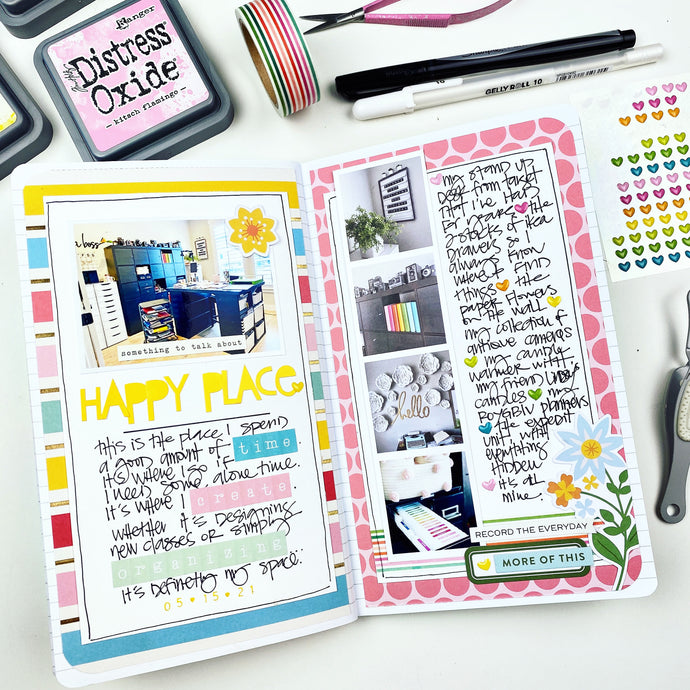 Ranger
Tim Holtz
Distress
Oxide
– kitsch flamingo –
10
GELLY ROLL 10
boss
something to talk about
HAPPY PLACE
this is the place I spend
a good amount of time.
it's where I go if
I need some alone time.
it's where I create.
whether it's designing
new classes or simply
organizing
it's definitely my space.
05•15•21
my stand up
desk from target
that I've had
for years the
2 stacks of ikea
drawers so I
always know
where to find
things the
paper flowers
on the wall
my collection of
antique cameras
my candle
warmer with
my friend
candles my
planners
the expedit
unit with
everything
hidden
it's all
mine.
hello
RECORD THE EVERYDAY
MORE OF THIS